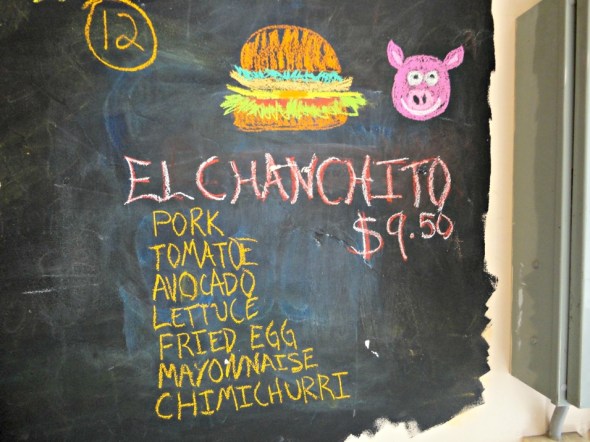 12
EL CHANCHITO
$9.50
PORK
TOMATOE
AVOCADO
LETTUCE
FRIED EGG
MAYONNAISE
CHIMICHURRI